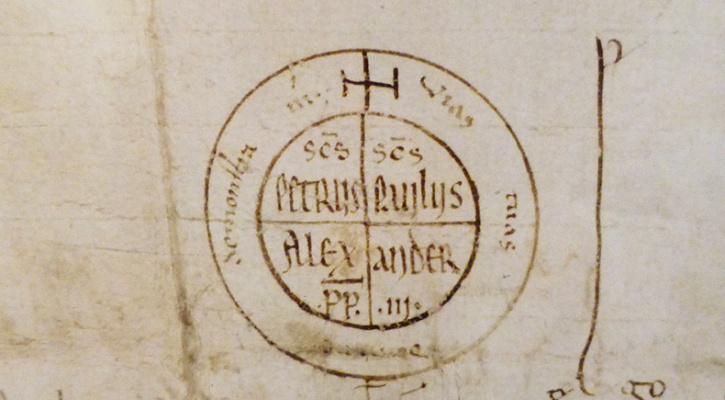 Vias tuas domine demonstra mihi
scs scs
PETRUS PAULUS
ALEXANDER
PP. .III.